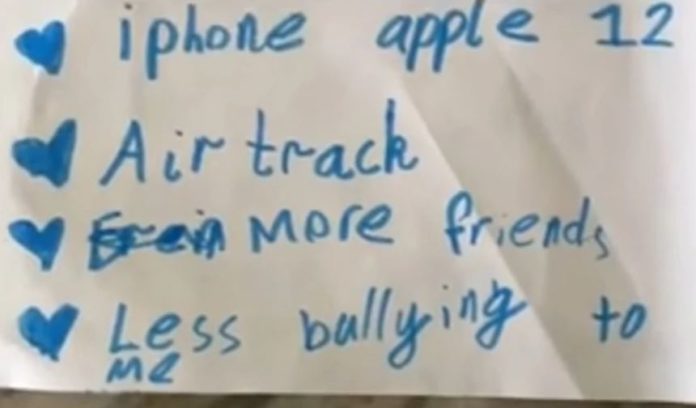 iphone apple 12
Air track
More friends
Less bullying to
me